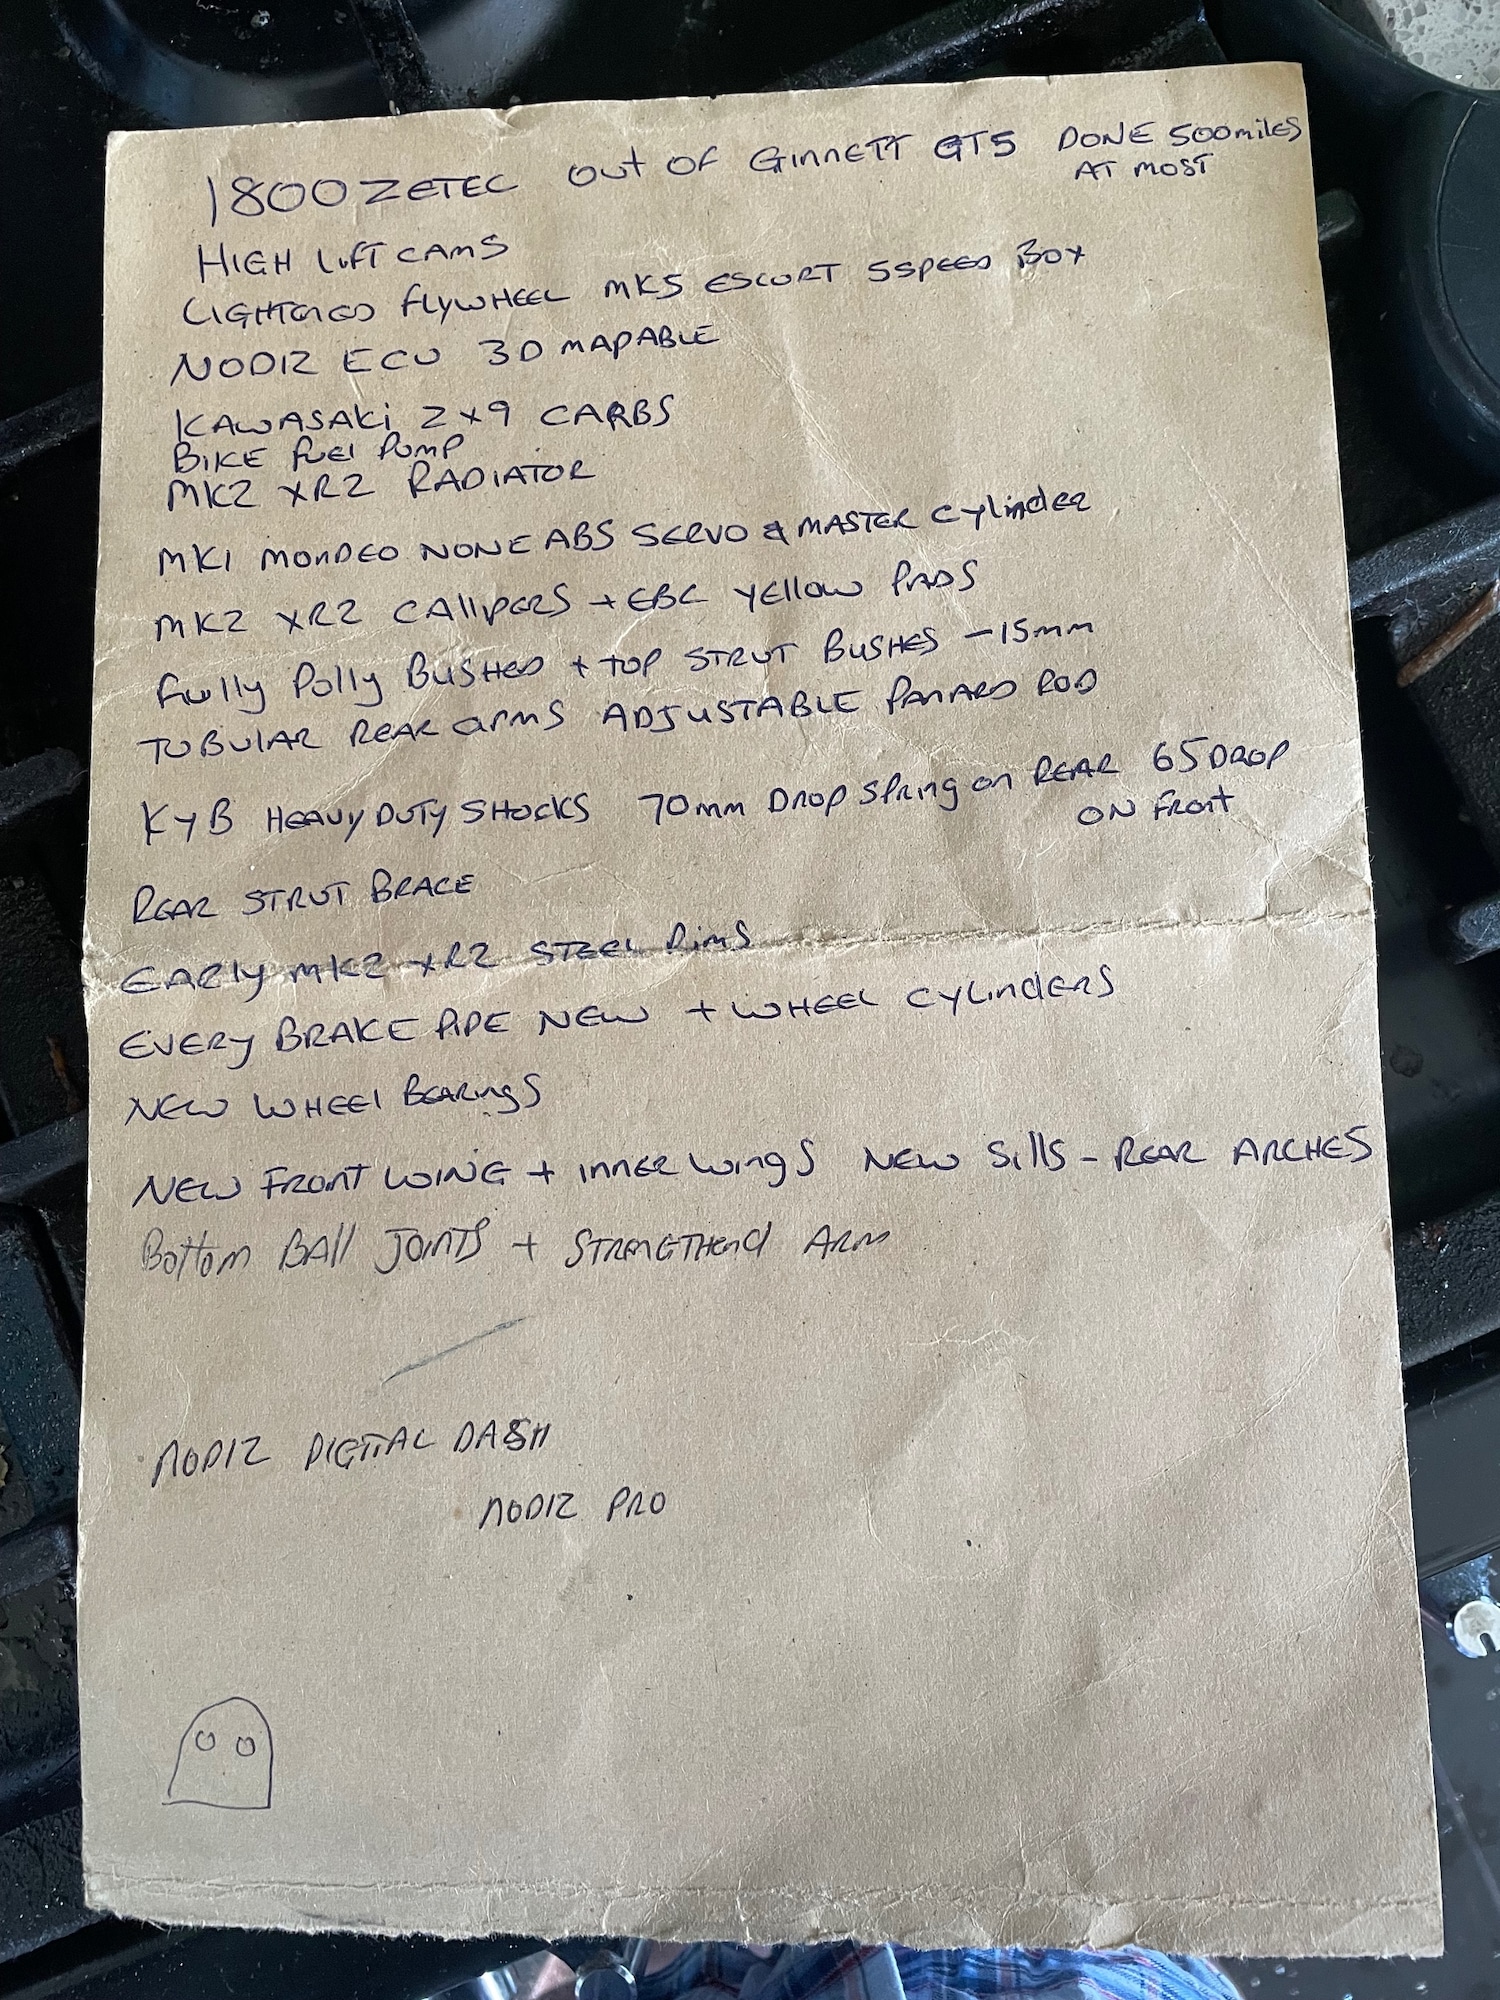 1800 ZETEC OUT OF GINNETT GT5 DONE 500 MILES
AT MOST
HIGH LIFT CAMS
LIGHTENED FLYWHEEL MK5 ESCORT 5 SPEED BOX
NODIZ ECU 3D MAPABLE
KAWASAKI ZX9 CARBS
BIKE FUEL PUMP
MK2 XR2 RADIATOR
MK1 MONDEO NONE ABS SERVO & MASTER CYLINDER
MK2 XR2 CALLIPERS + EBC YELLOW PADS
FULLY POLLY BUSHED + TOP STRUT BUSHES -15mm
TUBULAR REAR ARMS ADJUSTABLE PANARD ROD
KYB HEAVY DUTY SHOCKS 70mm DROP SPRING ON REAR 65 DROP
ON FRONT
REAR STRUT BRACE
EARLY MK2 XR2 STEEL RIMS
EVERY BRAKE PIPE NEW + WHEEL CYLINDERS
NEW WHEEL BEARINGS
NEW FRONT WING + INNER WINGS NEW SILLS - REAR ARCHES
BOTTOM BALL JOINTS + STRENGTHEND ARM
NODIZ DIGITAL DASH
NODIZ PRO